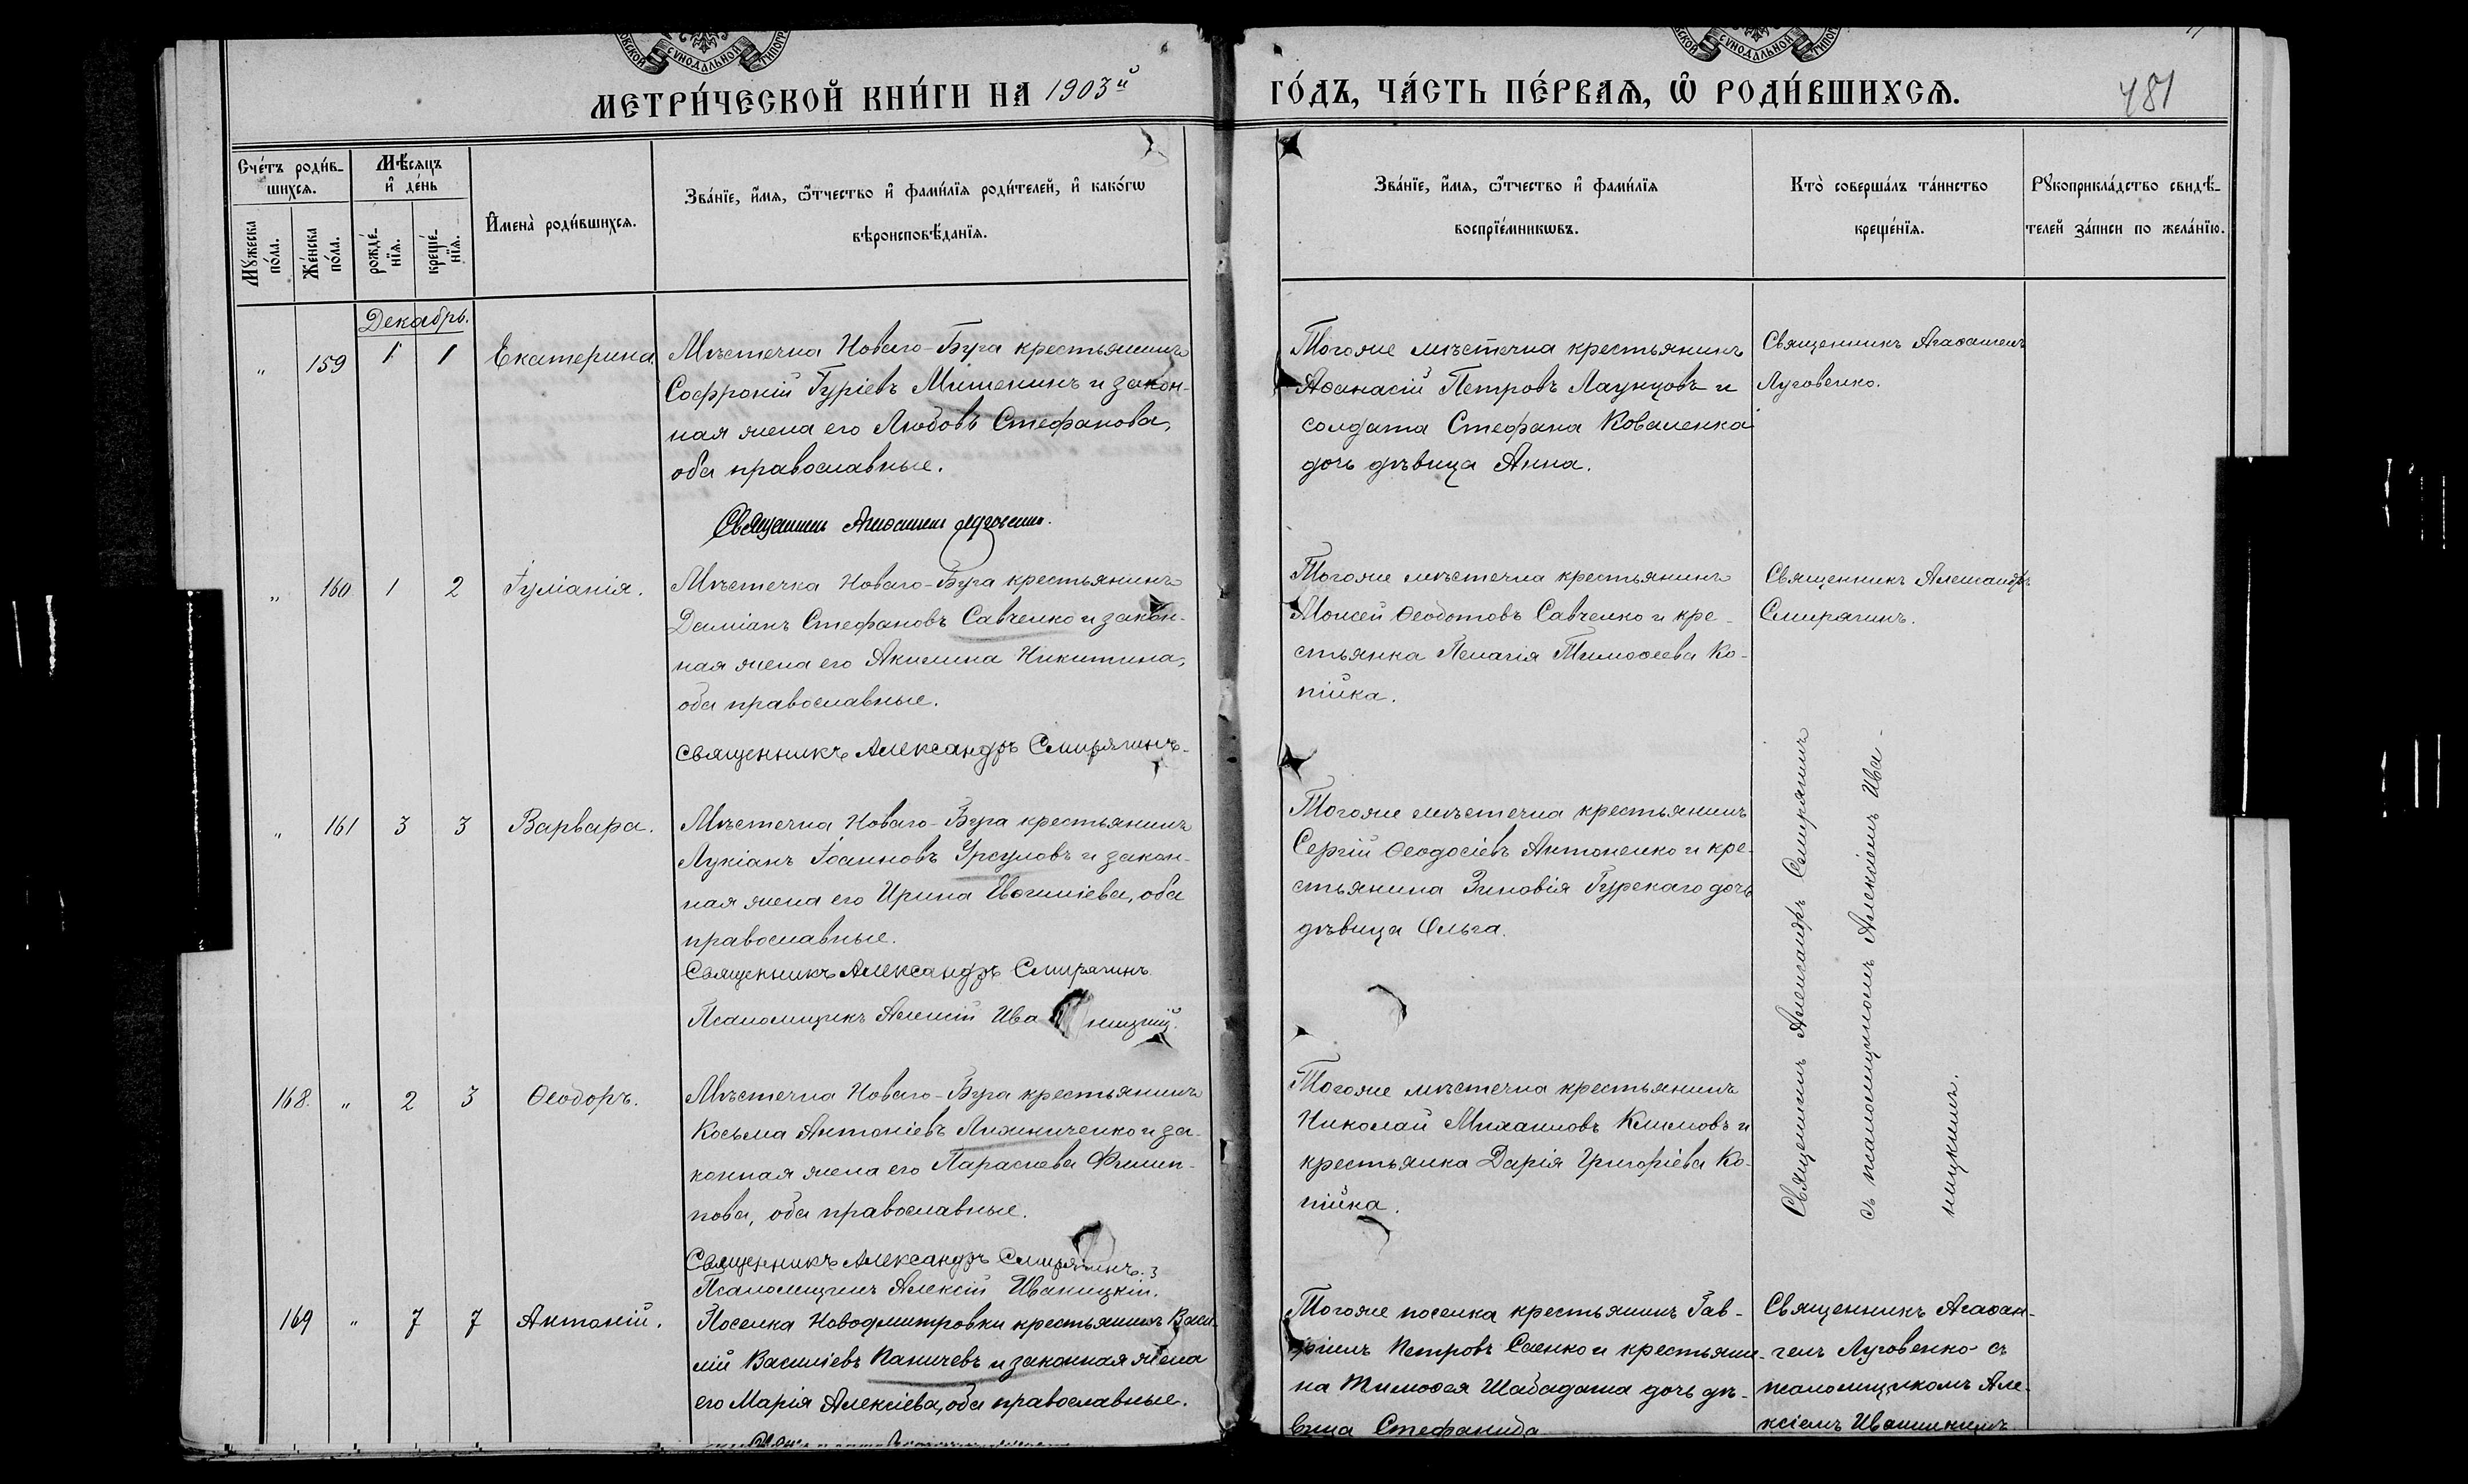 МЕТРИ́ЧЕСКОЙ КНИ́ГИ НА 1903й
ГО́ДЪ, ЧА́СТЬ ПЕ́РВАѦ, Ѡ҆ РОДИ́ВШИХСѦ.
481
Сче́тъ роди́в-
шихсѧ.
Мѣ́сѧцъ
и҆ де́нь
Мꙋ́жеска
по́ла.
Же́нска
по́ла.
рожде́-
нїѧ.
креще́-
нїѧ.
И҆мена̀ роди́вшихсѧ.
Зва́нїе, и҆́мѧ, ѻ҆́тчество и҆ фами́лїѧ роди́телей, и҆ како́гѡ
вѣроисповѣ́данїѧ.
Зва́нїе, и҆́мѧ, ѻ҆́тчество и҆ фами́лїѧ
воспрїе́мникѡвъ.
Кто̀ соверша́лъ та́инство
креще́нїѧ.
Рꙋкоприкла́дство свидѣ́-
телей за́писи по жела́нїю.
Декабрь.
„ 159 1 1 Екатерина.
Мѣстечка Новаго-Буга крестьянинъ
Софроній Гуріевъ Мишенинъ и закон-
ная жена его Любовь Стефанова,
оба православные.
Священникъ Агаѳангелъ Луговенко.
Тогоже мѣстечка крестьянинъ
Аѳанасій Петровъ Лаунцовъ и
солдата Стефана Коваленка
дочь дѣвица Анна.
Священникъ Агаѳангелъ
Луговенко.
„ 160 1 2 Іуліанія.
Мѣстечка Новаго-Буга крестьянинъ
Даміанъ Стефановъ Савченко и закон-
ная жена его Акилина Никитина,
оба православные.
священникъ Александръ Смирягинъ
Тогоже мѣстечка крестьянинъ
Моисей Ѳеодотовъ Савченко и кре-
стьянка Пелагія Тимоѳеева Ко-
пійка.
Священникъ Александръ
Смирягинъ.
„ 161 3 3 Варвара.
Мѣстечка Новаго-Буга крестьянинъ
Лукіанъ Іоанновъ Урсуловъ и закон-
ная жена его Ирина оба
православные.
Священникъ Александръ Смирягинъ
Псаломщикъ Алексій Ива ницкій.
Тогоже мѣстечка крестьянинъ
Сергій Ѳеодосіевъ Антоненко и кре-
стьянина Зиновія Гурскаго дочь
дѣвица Ольга.
Священникъ Александръ Смирягинъ
съ псаломщикомъ Алексіемъ Ива-
ницкимъ.
168. „ 2 3 Ѳеодоръ.
Мѣстечка Новаго-Буга крестьянинъ
Косьма Антоніевъ и за-
конная жена его Параскева Филип-
пова, оба православные.
Священникъ Александръ Смирягинъ.
Псаломщикъ Алексій Иваницкій.
Тогоже мѣстечка крестьянинъ
Николай Михаиловъ Климовъ и
крестьянка Дарія Григоріева Ко-
пійка.
169 „ 7 7 Антоній.
Поселка Новодмитровки крестьянинъ Васи-
лій Василіевъ Паничевъ и законная жена
его Марія Алексіева, оба православные.
Тогоже поселка крестьянинъ Гав-
ріилъ Петровъ Саенко и крестьяни-
на Тимоѳея Шабадаша дочь дѣ-
вица Стефанида
Священникъ Агаѳан-
гелъ Луговенко съ
псаломщикомъ Але-
ксіемъ Иваницкимъ